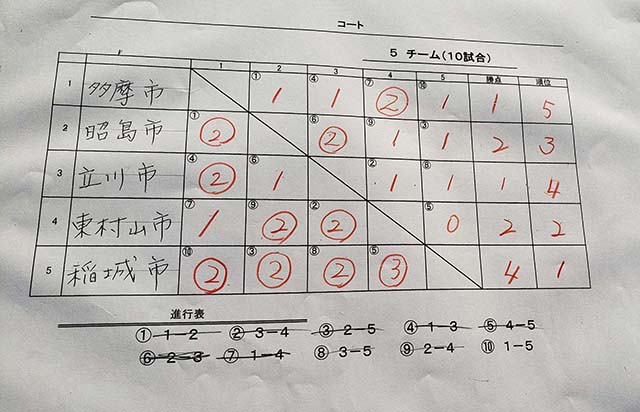 コート
5 チーム(10試合)
1 2 3 4 5 勝点 順位
1 多摩市 ① 1 ④ 1 ⑦ ② ⑩ 1 1 5
2 昭島市 ① ② ⑥ ② ⑨ 1 ③ 1 2 3
3 立川市 ④ ② ⑥ 1 ② 1 ⑧ 1 1 4
4 東村山市 ⑦ 1 ⑨ ② ② ② ⑤ 0 2 2
5 稲城市 ⑩ ② ③ ② ⑧ ② ⑤ ③ 4 1
進行表
① 1-2 ② 3-4 ③ 2-5 ④ 1-3 ⑤ 4-5
⑥ 2-3 ⑦ 1-4 ⑧ 3-5 ⑨ 2-4 ⑩ 1-5